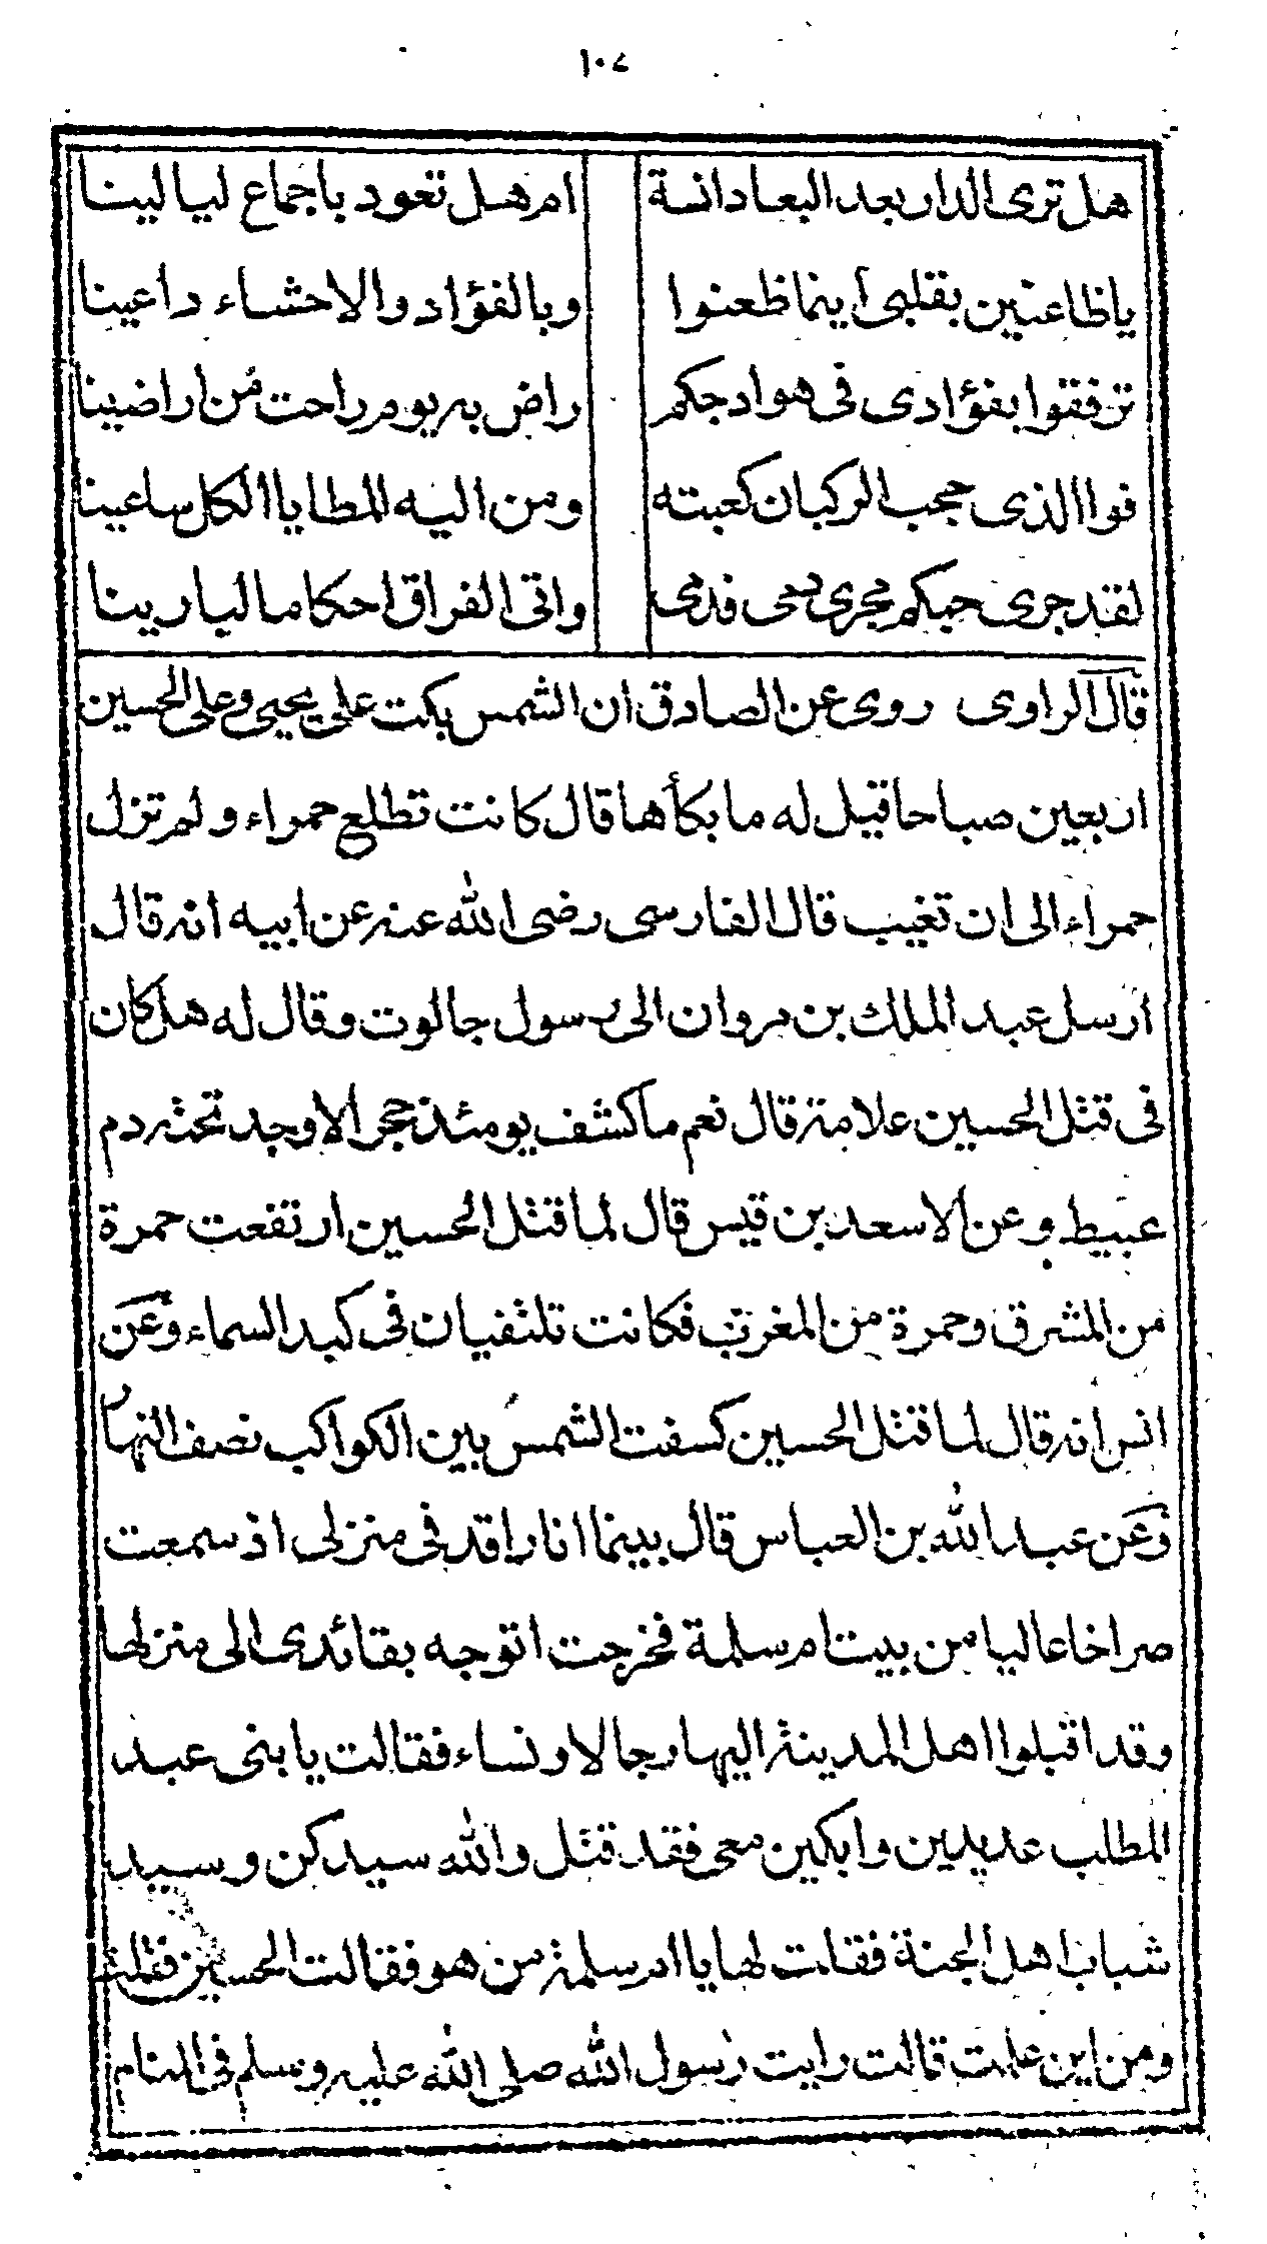 ١٠٧
هل ترى الدار بعد البعاد انسة ام هل تعود باجماع ليالينا
ياظاعنين بقلبى اينما ظعنوا وبالفؤاد والاحشاء داعينا
ترفقوا بفؤادى فى هوادجكم راض به يوم راحت من اراضينا
فواالذى حجب الركبان كعبته ومن اليه المطايا الكل ساعينا
لقد جرى حبكم مجرى دمى فدمى واتى الفراق احكاما لبارينا
قال الراوى روى عن الصادق ان الشمس بكت على يحيى وعلى الحسين
اربعين صباحا قيل له ما بكأها قال كانت تطلع حمراء ولم تزل
حمراء الى ان تغيب قال الفارسى رضى الله عنه عن ابيه انه قال
ارسل عبد الملك بن مروان الى رسول جالوت وقال له هل كان
فى قتل الحسين علامة قال نعم ما كشف يومئذ حجر الا وجد تحته دم
عبيط وعن الاسعد بن قيس قال لما قتل الحسين ارتفعت حمرة
من المشرق وحمرة من المغرب فكانت تلتقيان فى كبد السماء وعن
انس انه قال لما قتل الحسين كسفت الشمس بين الكواكب نصف النهار
وعن عبد الله بن العباس قال بينما انا راقد فى منزلى اذ سمعت
صراخا عاليا من بيت ام سلمة فخرجت اتوجه بقائدى الى منزلها
وقد اقبلوا اهل المدينة اليها رجالا ونساء فقالت يا بنى عبد
المطلب عديدين وابكين معى فقد قتل والله سيدكن وسيد
شباب اهل الجنة فقلت لها يا ام سلمة من هو فقالت الحسين فقلت
ومن اين علمت قالت رايت رسول الله صلى الله عليه وسلم فى المنام